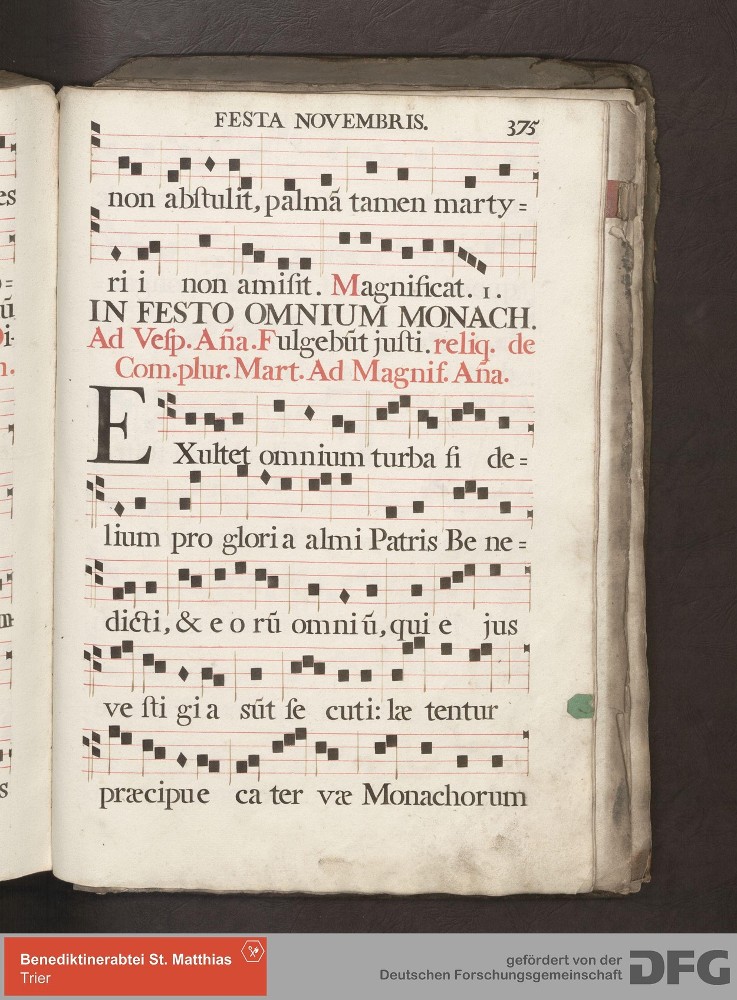 FESTA NOVEMBRIS. 375
non abſtulit, palmã tamen marty=
ri i non amiſit. Magnificat. 1.
IN FESTO OMNIUM MONACH.
Ad Veſp. Aña. Fulgebũt juſti. reliq. de
Com. plur. Mart. Ad Magnif. Aña.
EXultet omnium turba fi de=
lium pro gloria almi Patris Be ne=
dicti, & e o rũ omniũ, qui e jus
ve ſti gi a sũt ſe cuti: læ tentur
præcipu e ca ter væ Monachorum
Benediktinerabtei St. Matthias
Trier
gefördert von der
Deutschen Forschungsgemeinschaft
DFG